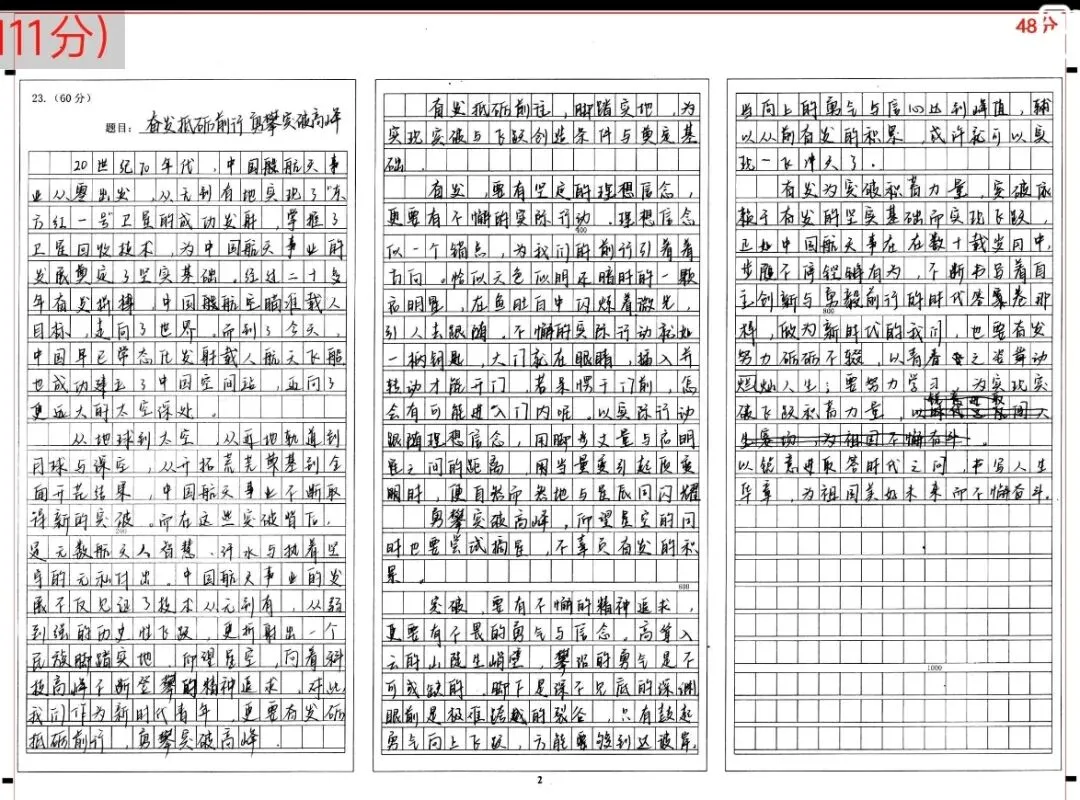 111分）
48分
23.（60分）
题目：奋发砥砺前行 勇攀突破高峰
20世纪70年代，中国航天事
业从零出发，从无到有地实现了“东
方红一号”卫星的成功发射，掌握了
卫星回收技术，为中国航天事业的
发展奠定了坚实基础。经过二十多
年奋发拼搏，中国航空瞄准载人
目标，走向了世界。而到了今天，
中国早已常态化发射载人航天飞船
也成功建立了中国空间站，迈向了
更远大的太空深处。
从地球到太空，从近地轨道到
月球与深空，从开拓荒芜奠基到全
面开花结果，中国航天事业不断取
得新的突破。而在这些突破背后，
200
是无数航天人智慧、汗水与执着坚
守的无私付出。中国航天事业的发
展不仅见证了技术从无到有，从弱
到强的历史性飞跃，更折射出一个
民族脚踏实地，仰望星空，向着科
技高峰不断登攀的精神追求。对此，
我们作为新时代青年，更要奋发砺
砥砺前行，勇攀突破高峰。
奋发砥砺前行，脚踏实地，为
实现突破与飞跃创造条件与奠定基
础。
奋发，要有坚定的理想信念，
更要有不懈的实际行动。理想信念
400
似一个锚点，为我们的前行引着着
方向。恰似天色似明还暗时的一颗
启明星，在鱼肚白中闪烁着微光，
引人去跟随。不懈的实际行动就如
一柄钥匙，大门就在眼睛，插入并
转动才能开门，若是惧于门前，怎
会有可能进入门内呢。以实际行动
跟随理想信念，用脚步丈量与启明
星之间的距离，因当量变引起质变
瞬时，便自然而然地与星辰同闪耀
勇攀突破高峰，仰望星空的同
时也要尝试摘星，不辜负奋发的积
累。
600
突破，要有不懈的精神追求，
更要有不畏的勇气与信念。高耸入
云的山陡生峭壁，攀沿的勇气是不
可或缺的，脚下是深不见底的深渊
眼前是极难跨越的裂谷，只有鼓起
勇气向上飞跃，方能够到达彼岸。
2
当向上的勇气与信心达到峰值，辅
以从前奋发的积累，或许就可以实
现一飞冲天了。
奋发为突破积蓄力量，突破成
就于奋发的坚实基础而实现飞跃，
正如中国航天事在在数十载岁月中，
步履不停铿锵有为，不断书写着自
主创新与勇毅前行的时代答卷那
800
样，做为新时代的我们，也要奋发
努力砺砺不辍，以青春之姿舞动
灿烂人生；要努力学习，为实现突
破飞跃积蓄力量，
以锐意进取答时代之问，书写人生
华章，为祖国美好未来而不懈奋斗。
1000